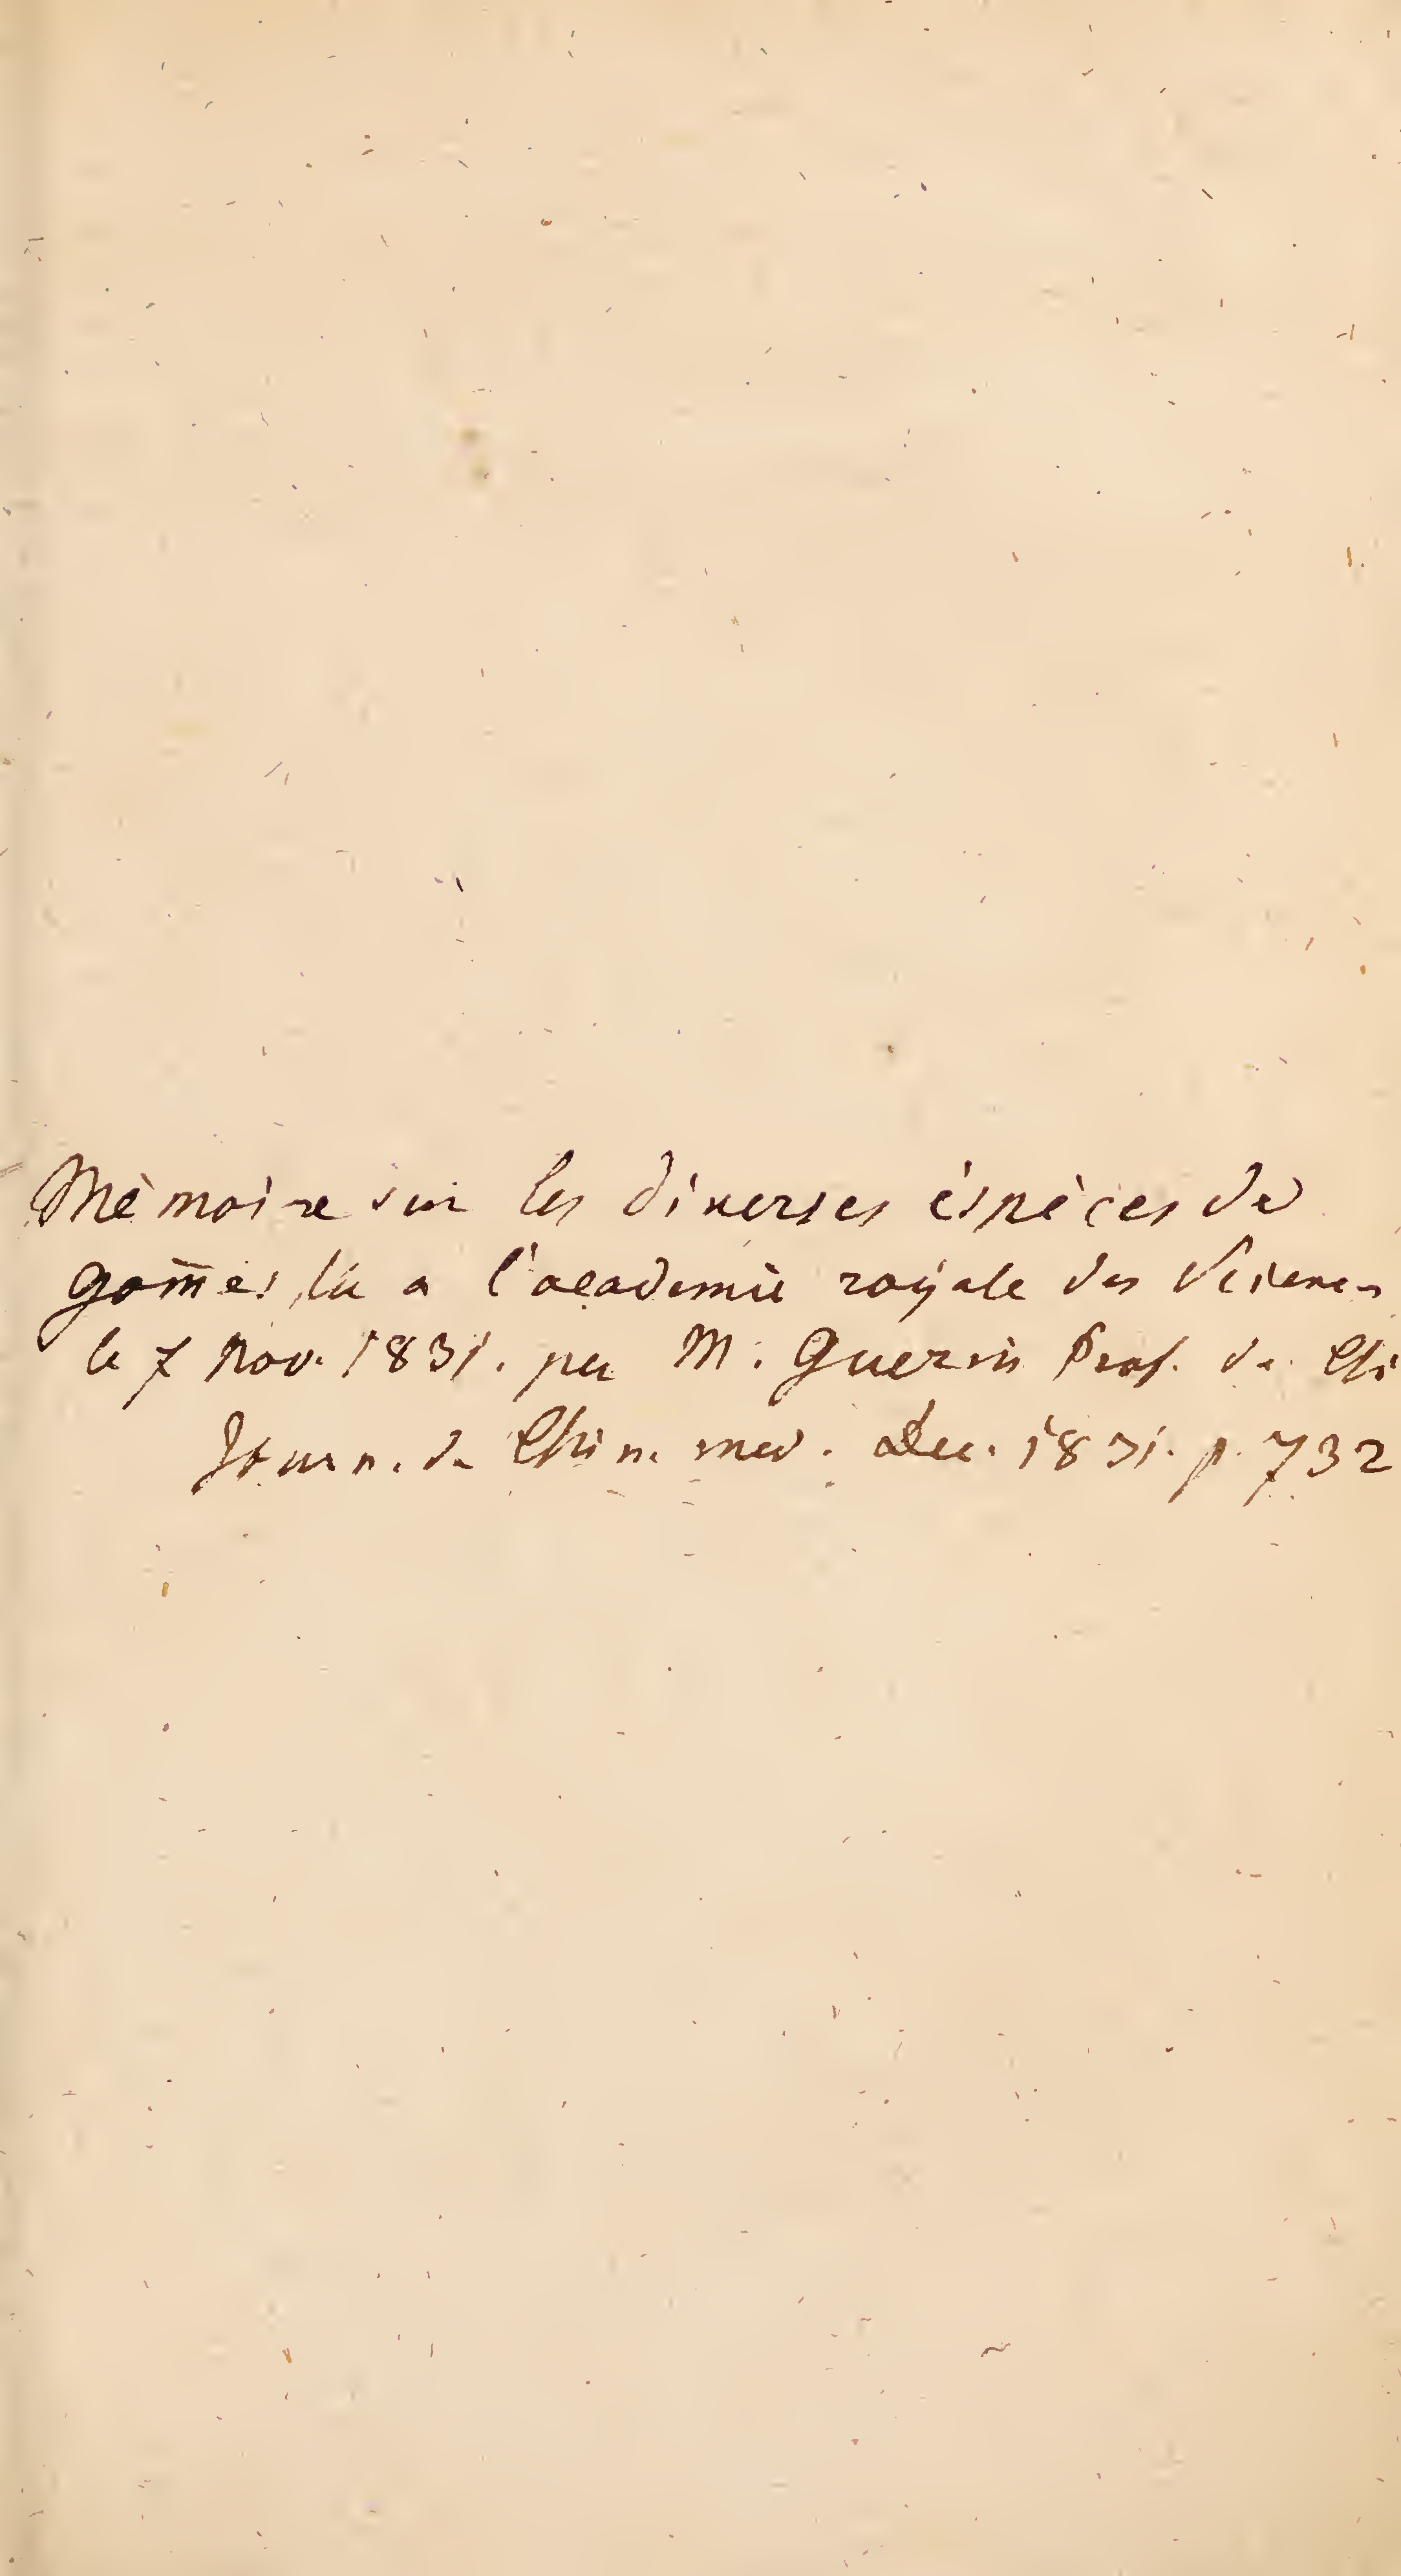 Mèmoire sur les diverses éspèces de
gom̄es, lu a l'academie royale des Sciences
le 7 Nov. 1831. par M. Guerin Prof. de Chi
Journ. de Chim. med. Dec. 1831. p. 732